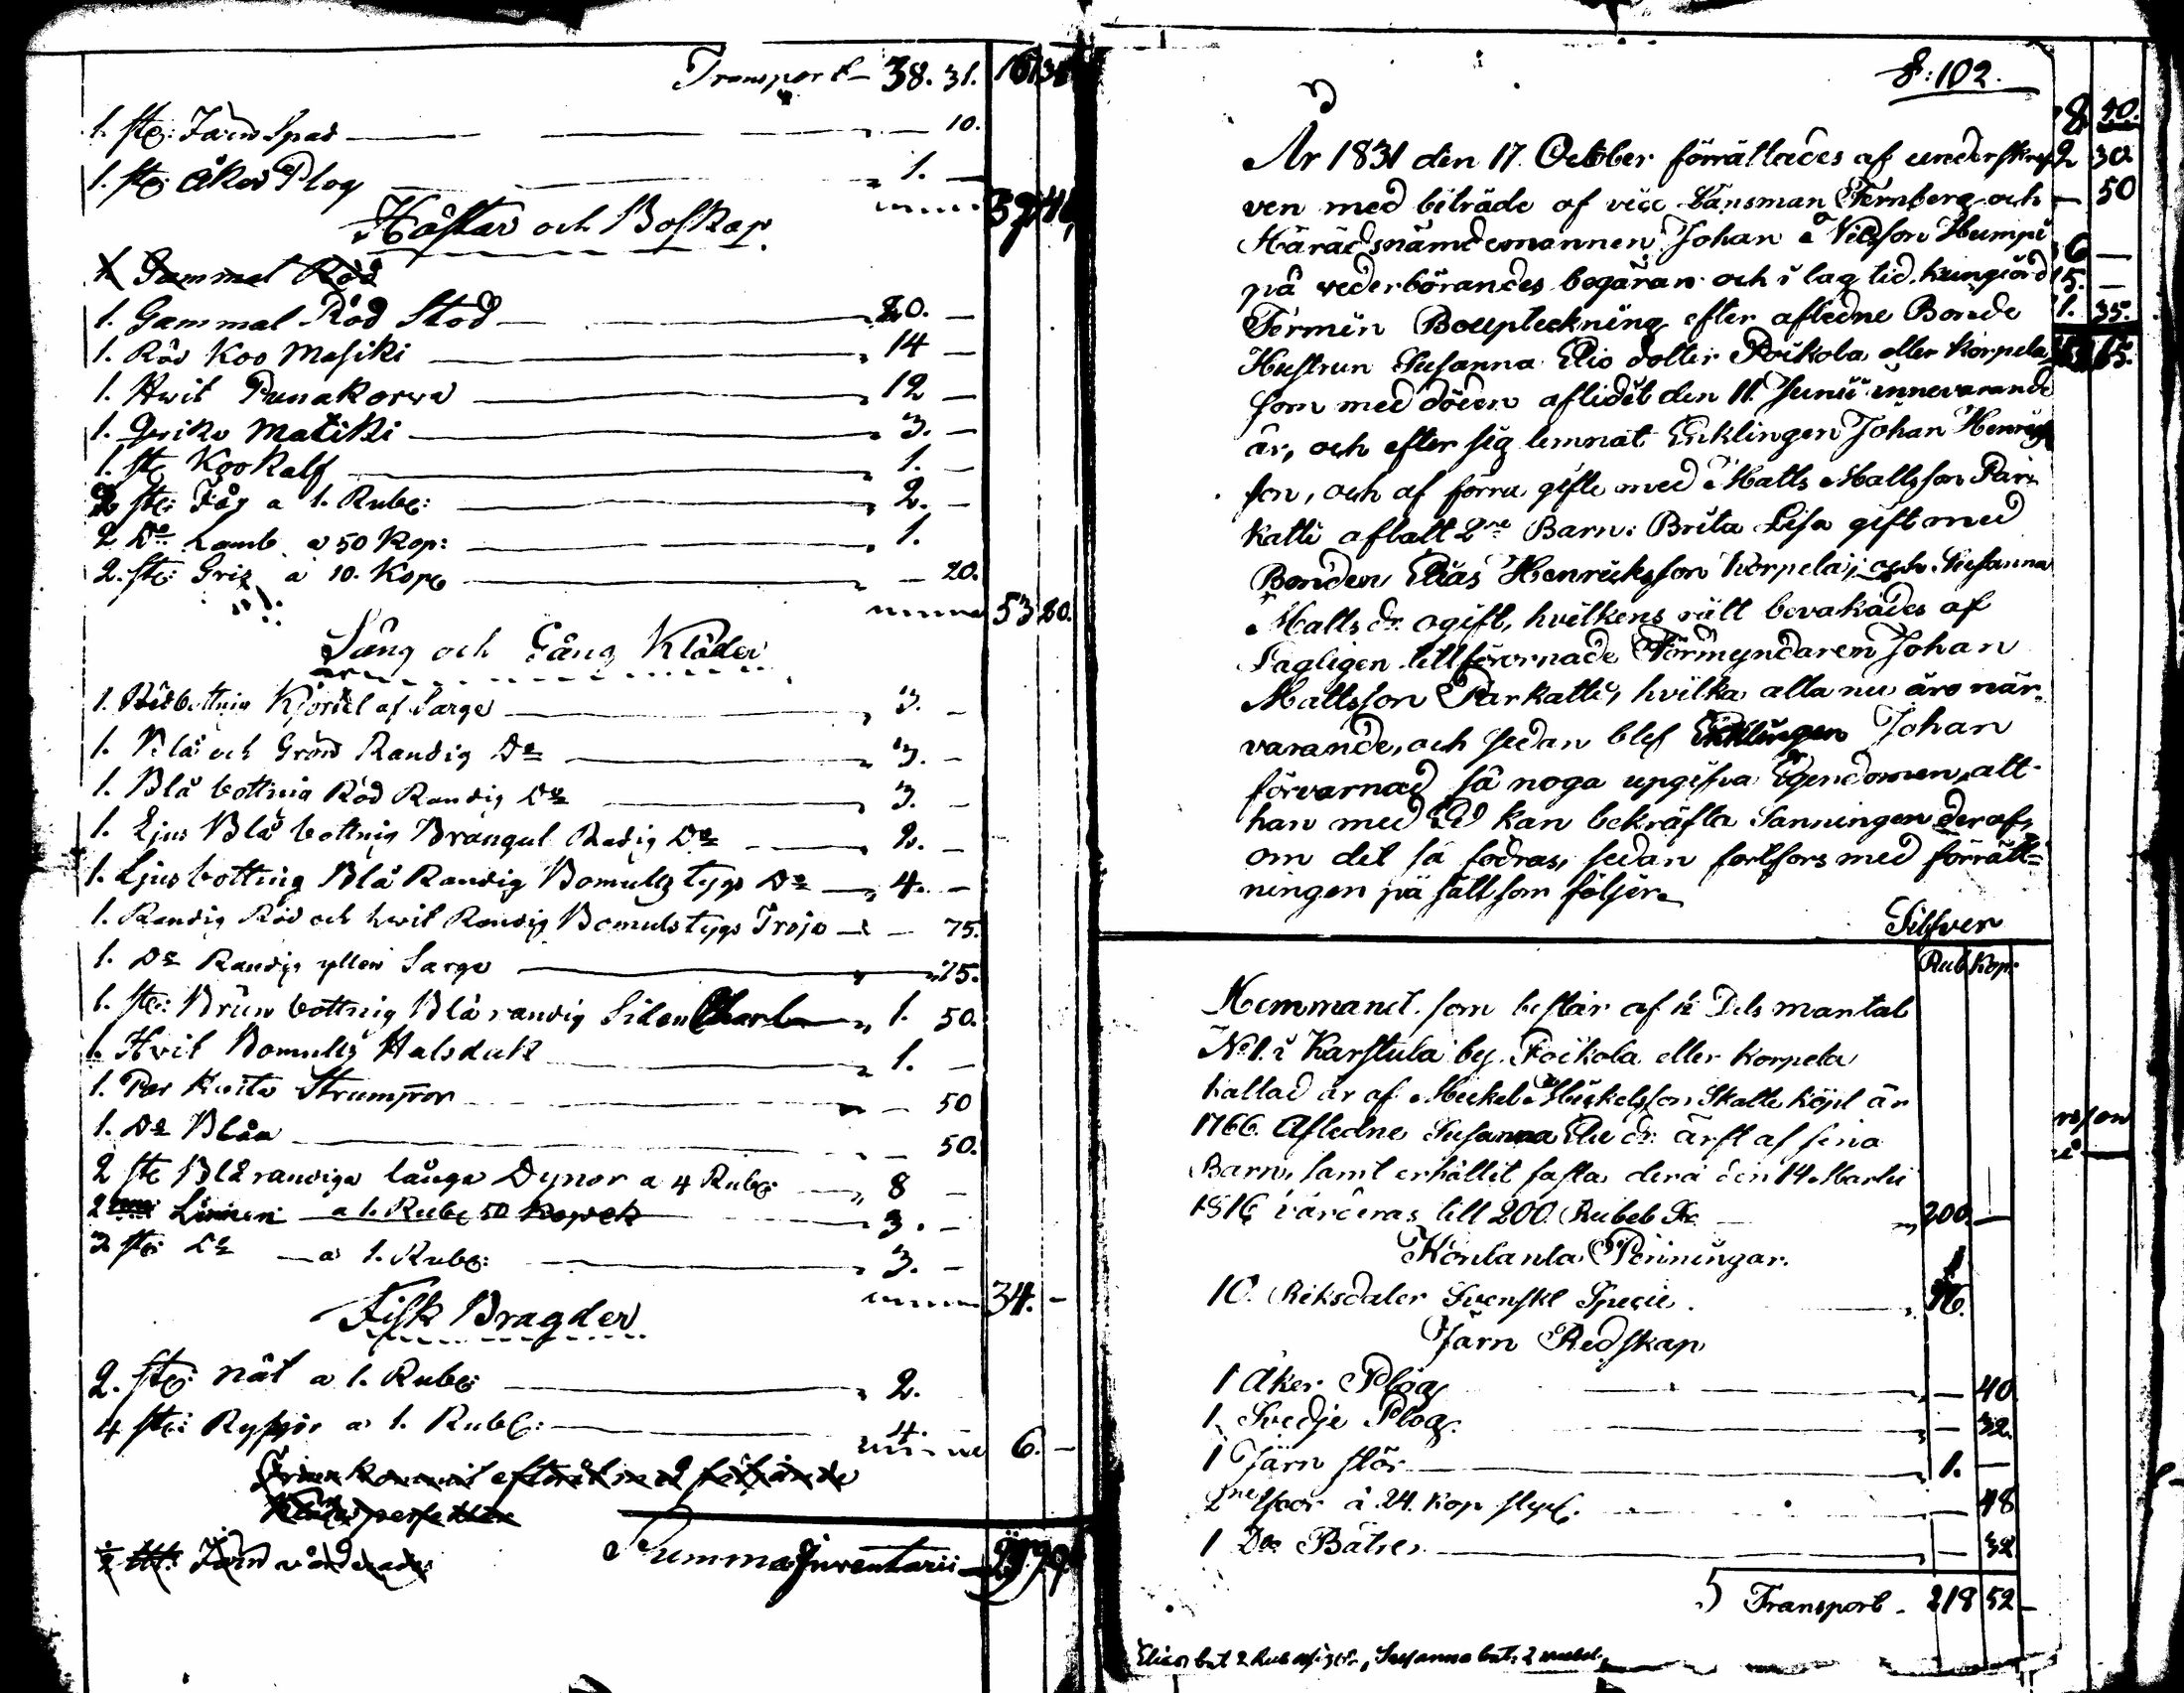 Transport - 38. 31.
1. st: Järn Spad - 10.
1. st: Åker Plog 1. -
Hästar och Boskap
1 Gammal Röd
1. Gammal Röd Stod 20. -
1. Röd Koo Mesiki 14 -
1. Hvit Punakorva 12 -
1. Qviko Matiki 3. -
1. st Koo Kalf 1. -
2 st: Får a 1. Rube: 2. -
2 Do Lamb a 50 Kop: 1.
2. st: Gris a 10. Kop - 20.
53 20.
Säng och Gång Kläder
1. Rödbottnig Kjortel af Sarge 3. -
1. Blå och Grön Randig Do 3. -
1. Blå bottnig Röd Randig Do 3. -
1. Ljus Blå bottnig Brangul Radig Do 2. -
1. Ljusbottnig Blå Randig Bomulls tygs Do 4. -
1. Randig Röd och hvit Randig Bomulstygs Tröja - 75.
1. Do Randig yllen Sarge 75.
1. st: Brun bottnig Blå randig Siden 1. 50.
1. Hvit Bomulls Halsduk 1. -
1. Par Hvita Strumpor - 50
1. Do Blåa - 50.
2 st Blårandiga långa Dynor a 4 Rube 8 -
2 Linnen a 1. Rube 50 Kopek 3. -
3 st: Do a 1. Rube: 3. -
34. -
Fisk Bragder
2. st: nät a 1. Rube 2.
4 st: Rysjor a 1. Rube: 4.
6. -
Summa Inventarii
8:102.
År 1831 den 17. October förrättades af underskref
ven med biträde af vice Länsman Fernberg och
Häradsnämdemannen Johan Nilsson Humpi
på vederbörandes begäran och i lag tid kungiord
Termin Bouptekning efter afledne Bonde
Hustrun Susanna Elio dotter Poikola eller Korpela
som med döden aflidit den 11. Junii innevarande
år, och efter sig lemnat Enklingen Johan Henriks
son, och af förra gifte med Matts Mattsson Par
katti aflatt 2ne Barn: Brita Lisa gift med
Bonden Elias Henriksson Korpela; och Susanna
Matts dr ogift, hvilkens rätt bevakades af
Lagligen tillförornade Förmyndaren Johan
Mattsson Parkatti, hvilka alla nu äro när-
varande, och sedan blef Enklingen Johan
förvarnad så noga upgifva Egendomen, att
han med Ed kan bekräfta Sanningen deraf,
om det så fodras, sedan fortfors med förrätt=
ningen på sätt som följer.
Silfver
Rub Kop:
Hemmanet som består af Dels mantal
No 1. i Karstula by. Poikola eller Korpela
kallad är af Mickel Mickelsson Skatte köpt år
1766. Afledne Susanna Elie dr ärft af sina
Barn, samt erhållit fasta derå den 14 Martii
1816 värderas till 200. Rubel Sr 200. -
Kontanta Penningar.
10. Riksdaler Svenskt Specie 16.
Järn Redskap
1 Åker Plog - 40
1 Svedje Plog - 32.
1 Järn stör 1. -
2ne skor à 24. kop styck. - 48
1 Do Bätre - 32
Transport - 218 52